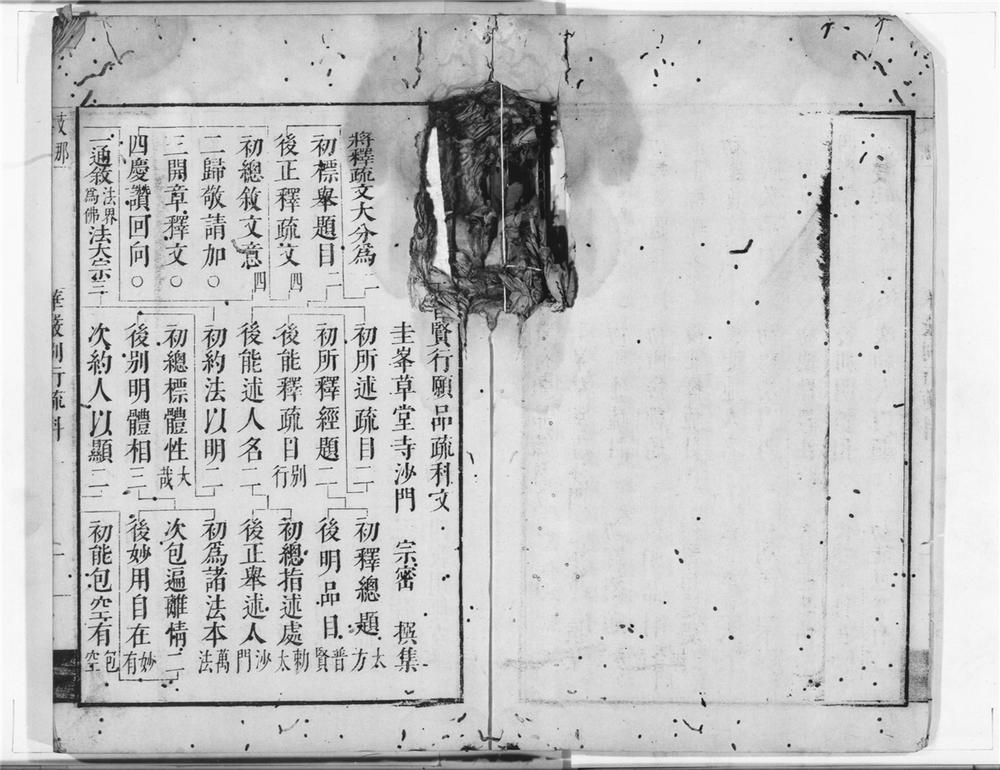 賢行願品疏科文
圭峯草堂寺沙門 宗密 撰集
將釋疏文大分爲二 初所述疏目二 初釋總題 太方
初標舉題目二 初所釋經題二 後明品目 普賢
後正釋疏文四 後能釋疏目 别行 初總指述處 太刺
初總敘文意四 後能述人名二 後正舉述人 沙門
二歸敬請加○ 初約法以明二 初爲諸法本 萬法
三開章釋文○ 初總標體性 大哉 次包遍離情二
四慶讚回向○ 後别明體相三 後妙用自在 妙有
一通敘法界爲佛法大宗三 次約人以顯二 初能包空有 包空
支那 華嚴别行疏科 一